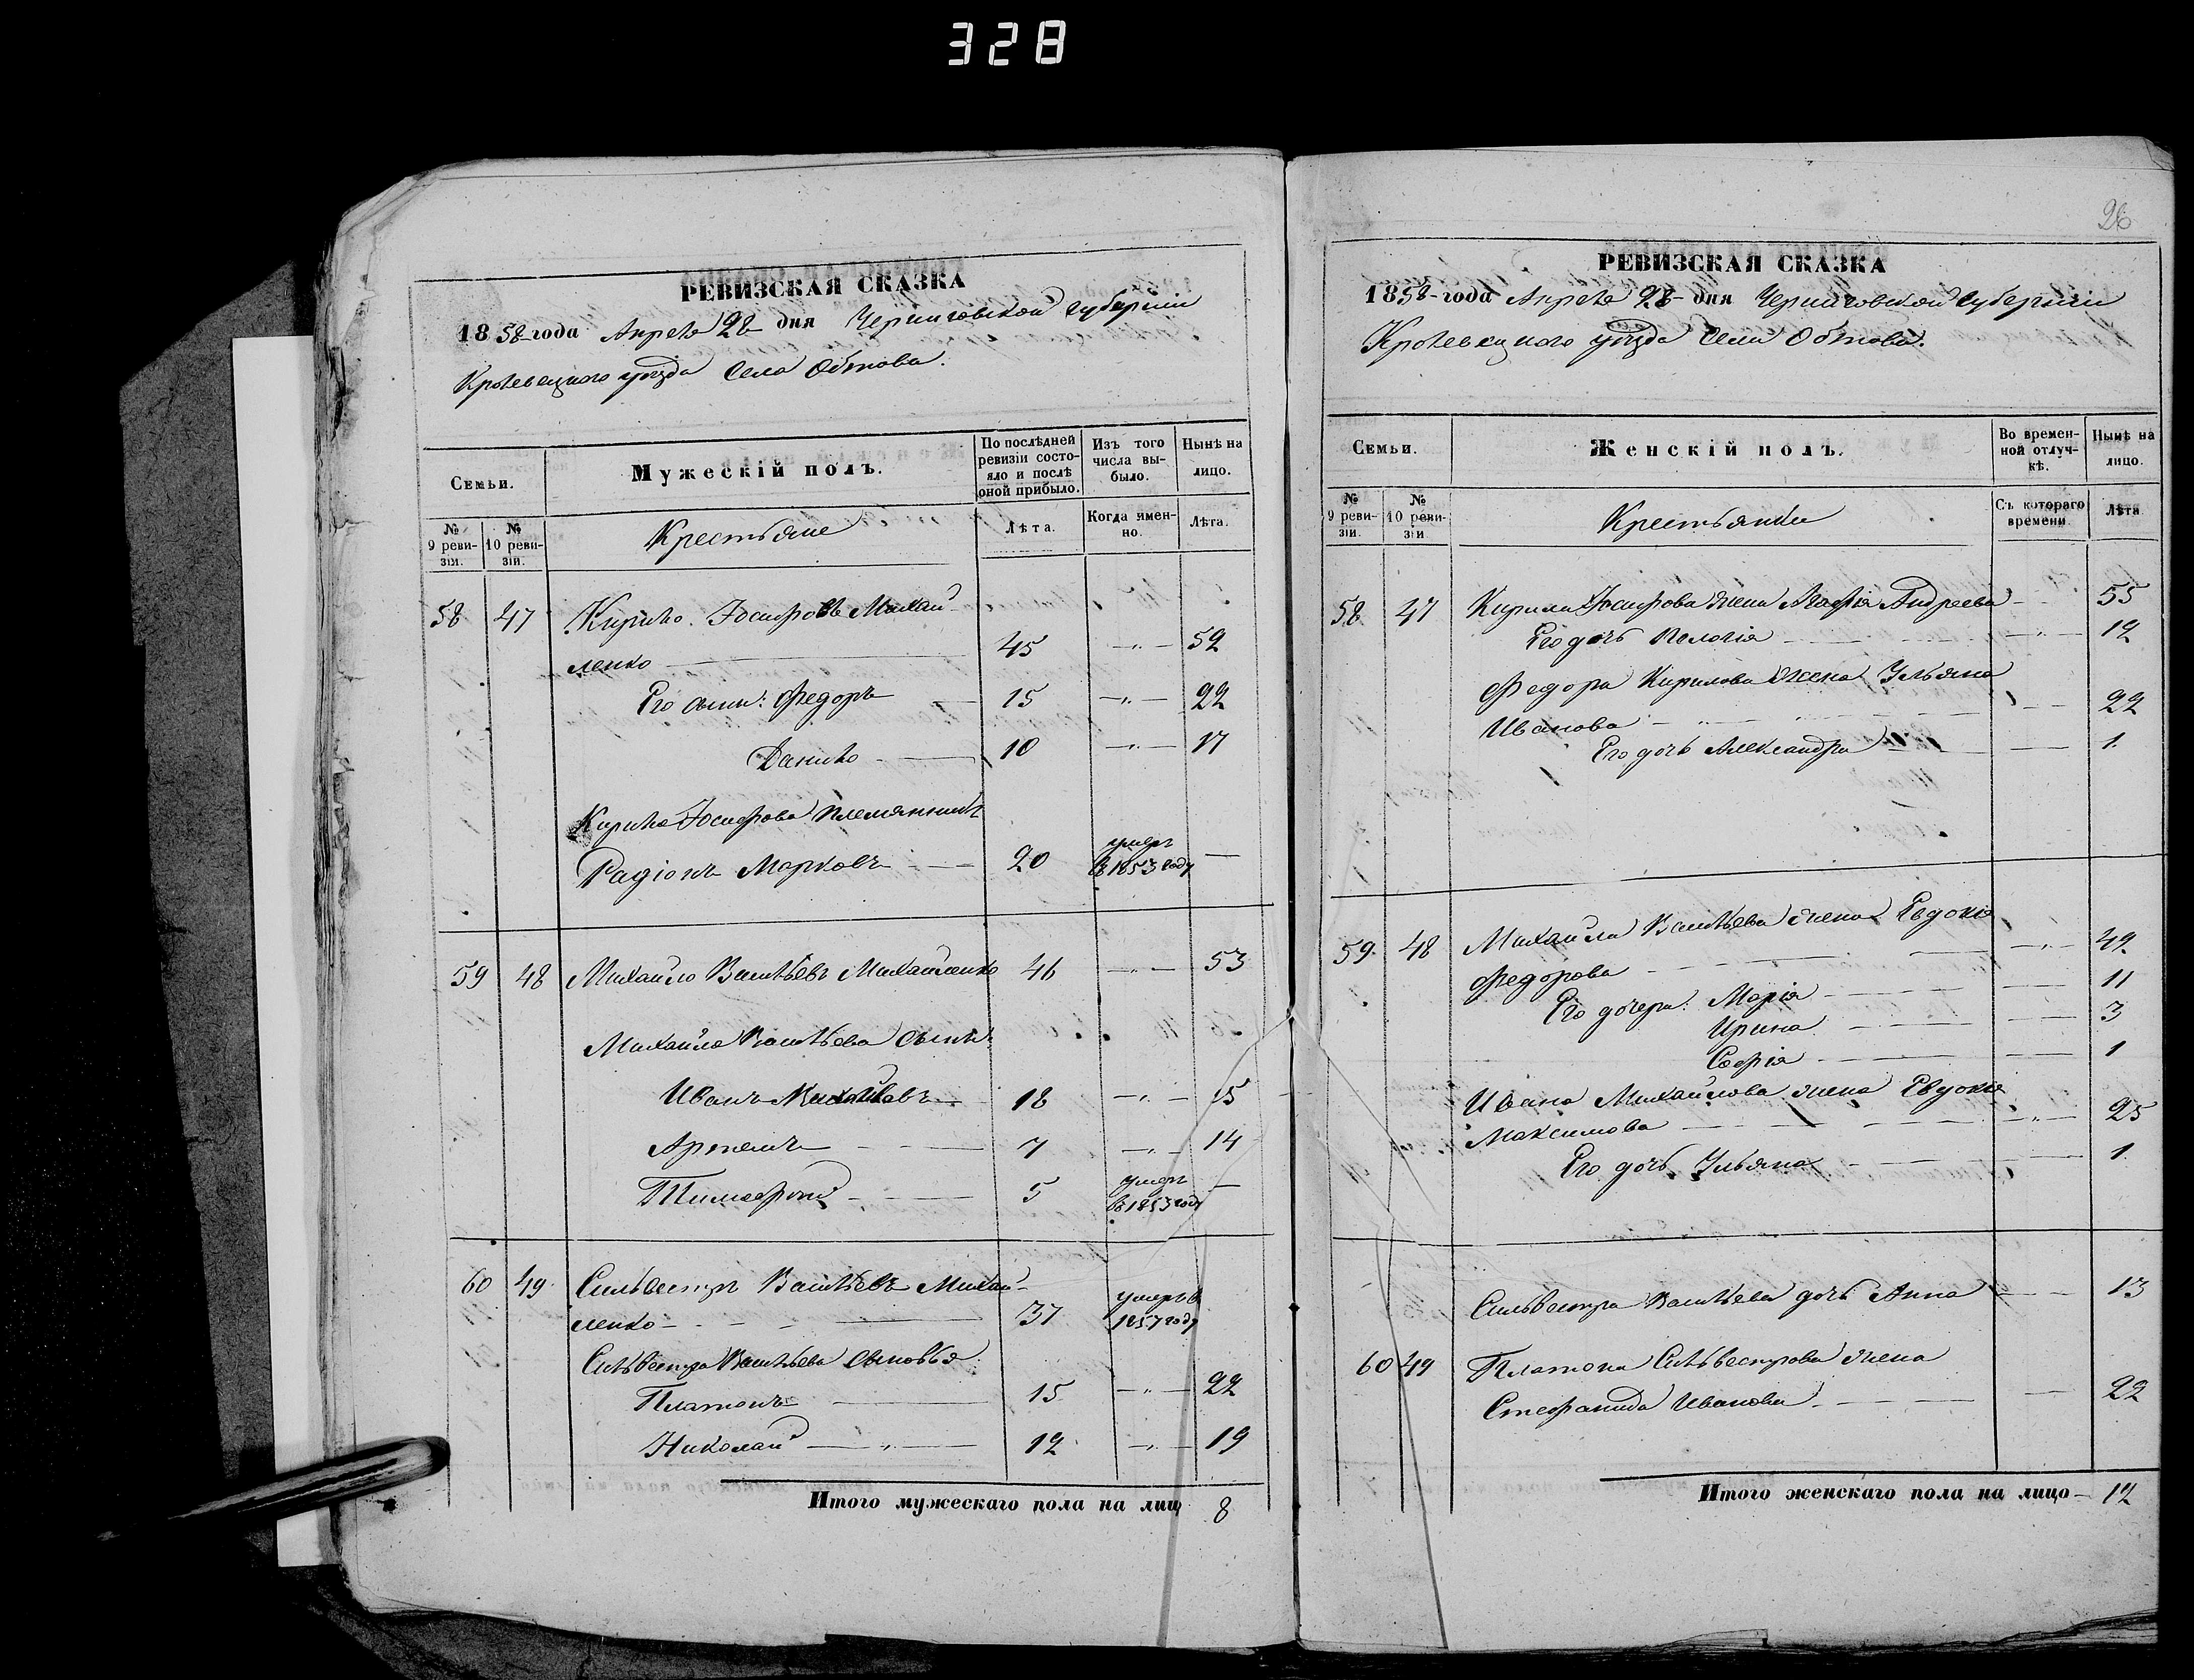 328
РЕВИЗСКАЯ СКАЗКА
1858 года Апреля 28 дня Черниговской губернии
Кролевецкого уезда Села Обтова.
Семьи.
Мужескій полъ.
По послѣдней ревизіи состояло и послѣ оной прибыло.
Изъ того числа выбыло.
Нынѣ на лицо.
№ 9 ревизіи.
№ 10 ревизіи.
Крестьяне
Лѣта.
Когда именно.
Лѣта.
58 47 Кирило Іосифовъ Михай-
ленко 45 — „ — 52
Его сыны: Федоръ 15 — „ — 22
Данило 10 — „ — 17
Кирила Іосифова племянникъ
Радіонъ Марковъ 20 умеръ в 1853 году —
59 48 Михайло Васильевъ Михайленко 46 — „ — 53
Михайла Васильева сыны:
Иванъ 18 — „ —
Артемъ 7 — „ — 14
Тимофей 5 умеръ в 1853 году —
60 49 Сильвестръ Васильевъ Михай-
ленко 37 умеръ в 1857 году
Сильвестра Васильева сыновья
Платонъ 15 — „ — 22
Николай — „ — 12 — „ — 19
Итого мужескаго пола на лиц 8
26
РЕВИЗСКАЯ СКАЗКА
1858 года Апреля 28 дня Черниговской губернии
Кролевецкого уезда Села Обтова.
Семьи.
Женскій полъ.
Во временной отлучкѣ.
Нынѣ на лицо.
№ 9 ревизіи.
№ 10 ревизіи
Крестьянки
Съ котораго времени.
Лѣта
58 47 Кирила Іосифова жена Агафія Андреева 55
Его дочь Пелагія — „ — 12
Федора Кирилова жена Ульяна
Иванова 22
Его дочь Александра 1
59. 48 Михайла Васильева жена Евдокія
Федорова — „ — 42
Его дочери: Марія 11
Ирина 3
Софія 1
Ивана Михайлова жена Евдокія
Максимова — „ — 25
Его дочь Ульяна 1
Сильвестра Васильева дочь Анна 13
60 49 Платона Сильвестрова жена
Стефанида Иванова 22
Итого женскаго пола на лицо — 12